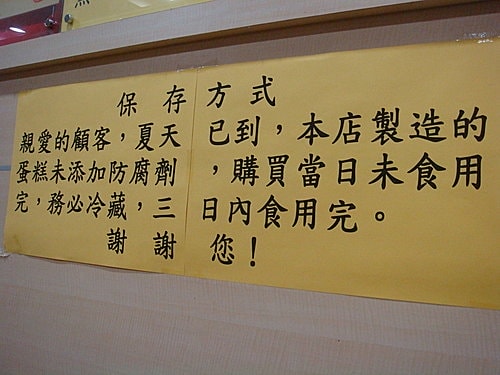 保存方式
親愛的顧客，夏天已到，本店製造的
蛋糕未添加防腐劑，購買當日未食用
完，務必冷藏，三日內食用完。
謝謝您！